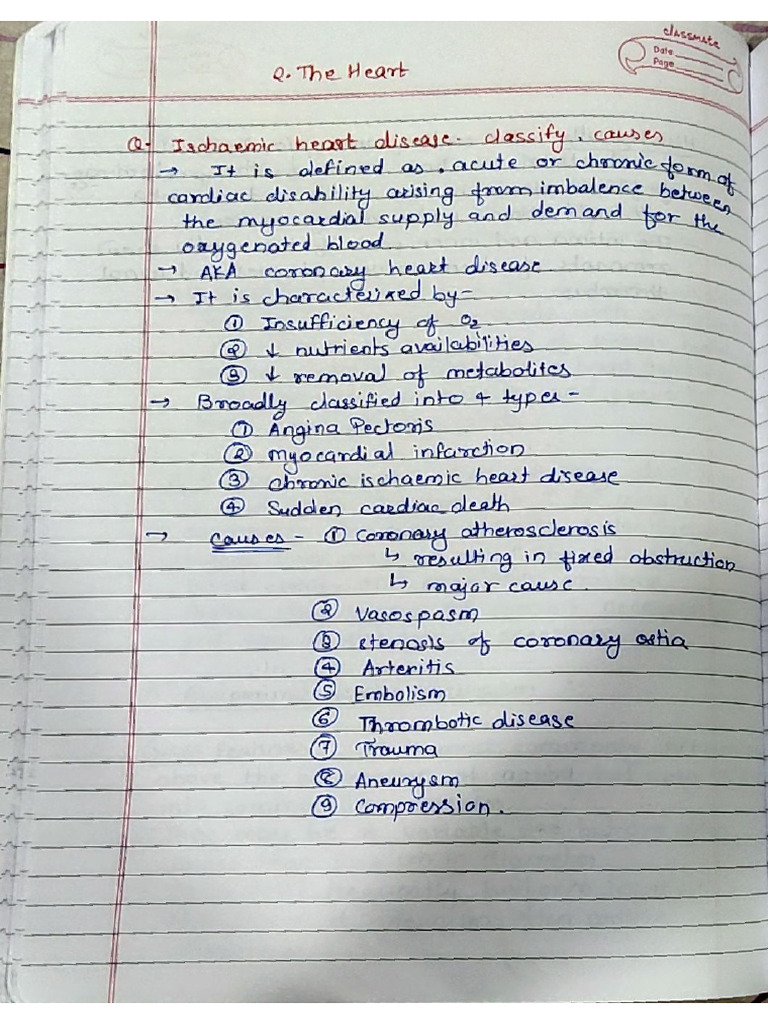 classmate
Date
Page
2. The Heart
Q. Ischaemic heart disease. classify, causes
→ It is defined as, acute or chronic form of
cardiac disability arising from imbalence between
the myocardial supply and demand for the
oxygenated blood
→ AKA coronary heart disease
→ It is characterized by-
① Insufficiency of O₂
② ↓ nutrients availabilities
③ ↓ removal of metabolites
→ Broadly classified into 4 types -
① Angina Pectoris
② myocardial infarction
③ chronic ischaemic heart disease
④ Sudden cardiac death
→ Causes - ① Coronary atherosclerosis
↳ resulting in fixed obstruction
↳ major cause.
② Vasospasm
③ stenosis of coronary ostia
④ Arteritis
⑤ Embolism
⑥ Thrombotic disease
⑦ Trauma
⑧ Aneurysm
⑨ Compression.